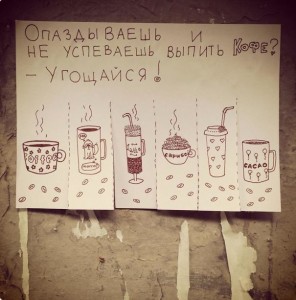 Опаздываешь и
не успеваешь выпить кофе?
– Угощайся!
COFFEE
CACAO